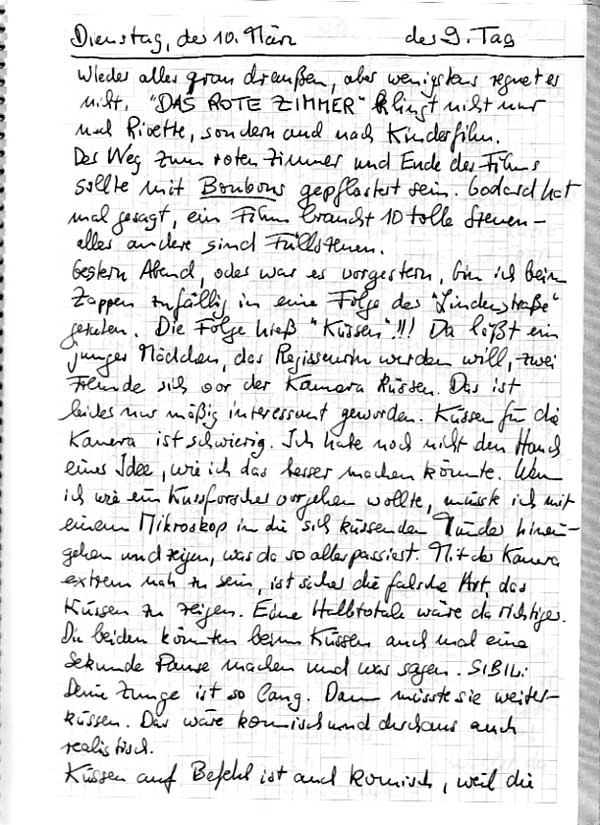 Dienstag, der 10. März der 9. Tag
Wieder alles grau draußen, aber wenigstens regnet es
nicht. "DAS ROTE ZIMMER" klingt nicht nur
nach Rivette, sondern auch nach Kinderfilm.
Der Weg zum roten Zimmer und Ende des Films
sollte mit Bonbons gepflastert sein. Godard hat
mal gesagt, ein Film braucht 10 tolle Szenen –
alles andere sind Füllszenen.
Gestern Abend, oder war es vorgestern, bin ich beim
Zappen zufällig in eine Folge der "Lindenstraße"
geraten. Die Folge hieß "Küssen"!!! Da läßt ein
junges Mädchen, das Regisseurin werden will, zwei
Freunde sich vor der Kamera küssen. Das ist
leider nur mäßig interessant geworden. Küssen für die
Kamera ist schwierig. Ich habe noch nicht den Hauch
einer Idee, wie ich das besser machen könnte. Wenn
ich wie ein Kussforscher vorgehen wollte, müsste ich mit
einem Mikroskop in die sich küssenden Münder hinein-
gehen und zeigen, was da so alles passiert. Mit der Kamera
extrem nah zu sein, ist sicher die falsche Art, das
Küssen zu zeigen. Eine Halbtotale wäre da richtiger.
Die beiden könnten beim Küssen auch mal eine
Sekunde Pause machen und was sagen. SIBIL:
Deine Zunge ist so lang. Dann müsste sie weiter-
küssen. Das wäre komisch und durchaus auch
realistisch.
Küssen auf Befehl ist auch komisch, weil die